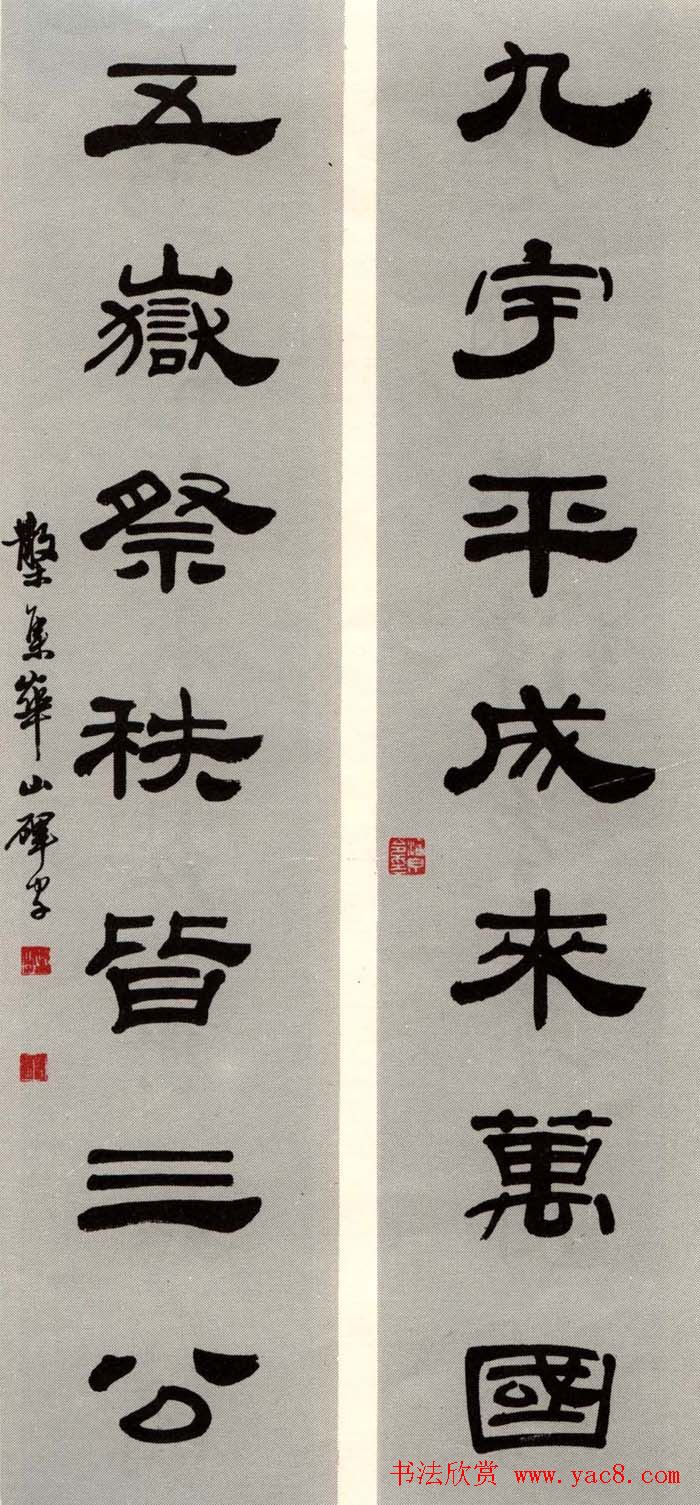 九宇平成來萬國
五嶽祭秩皆三公
集華山碑字
书法欣赏 www.yac8.com